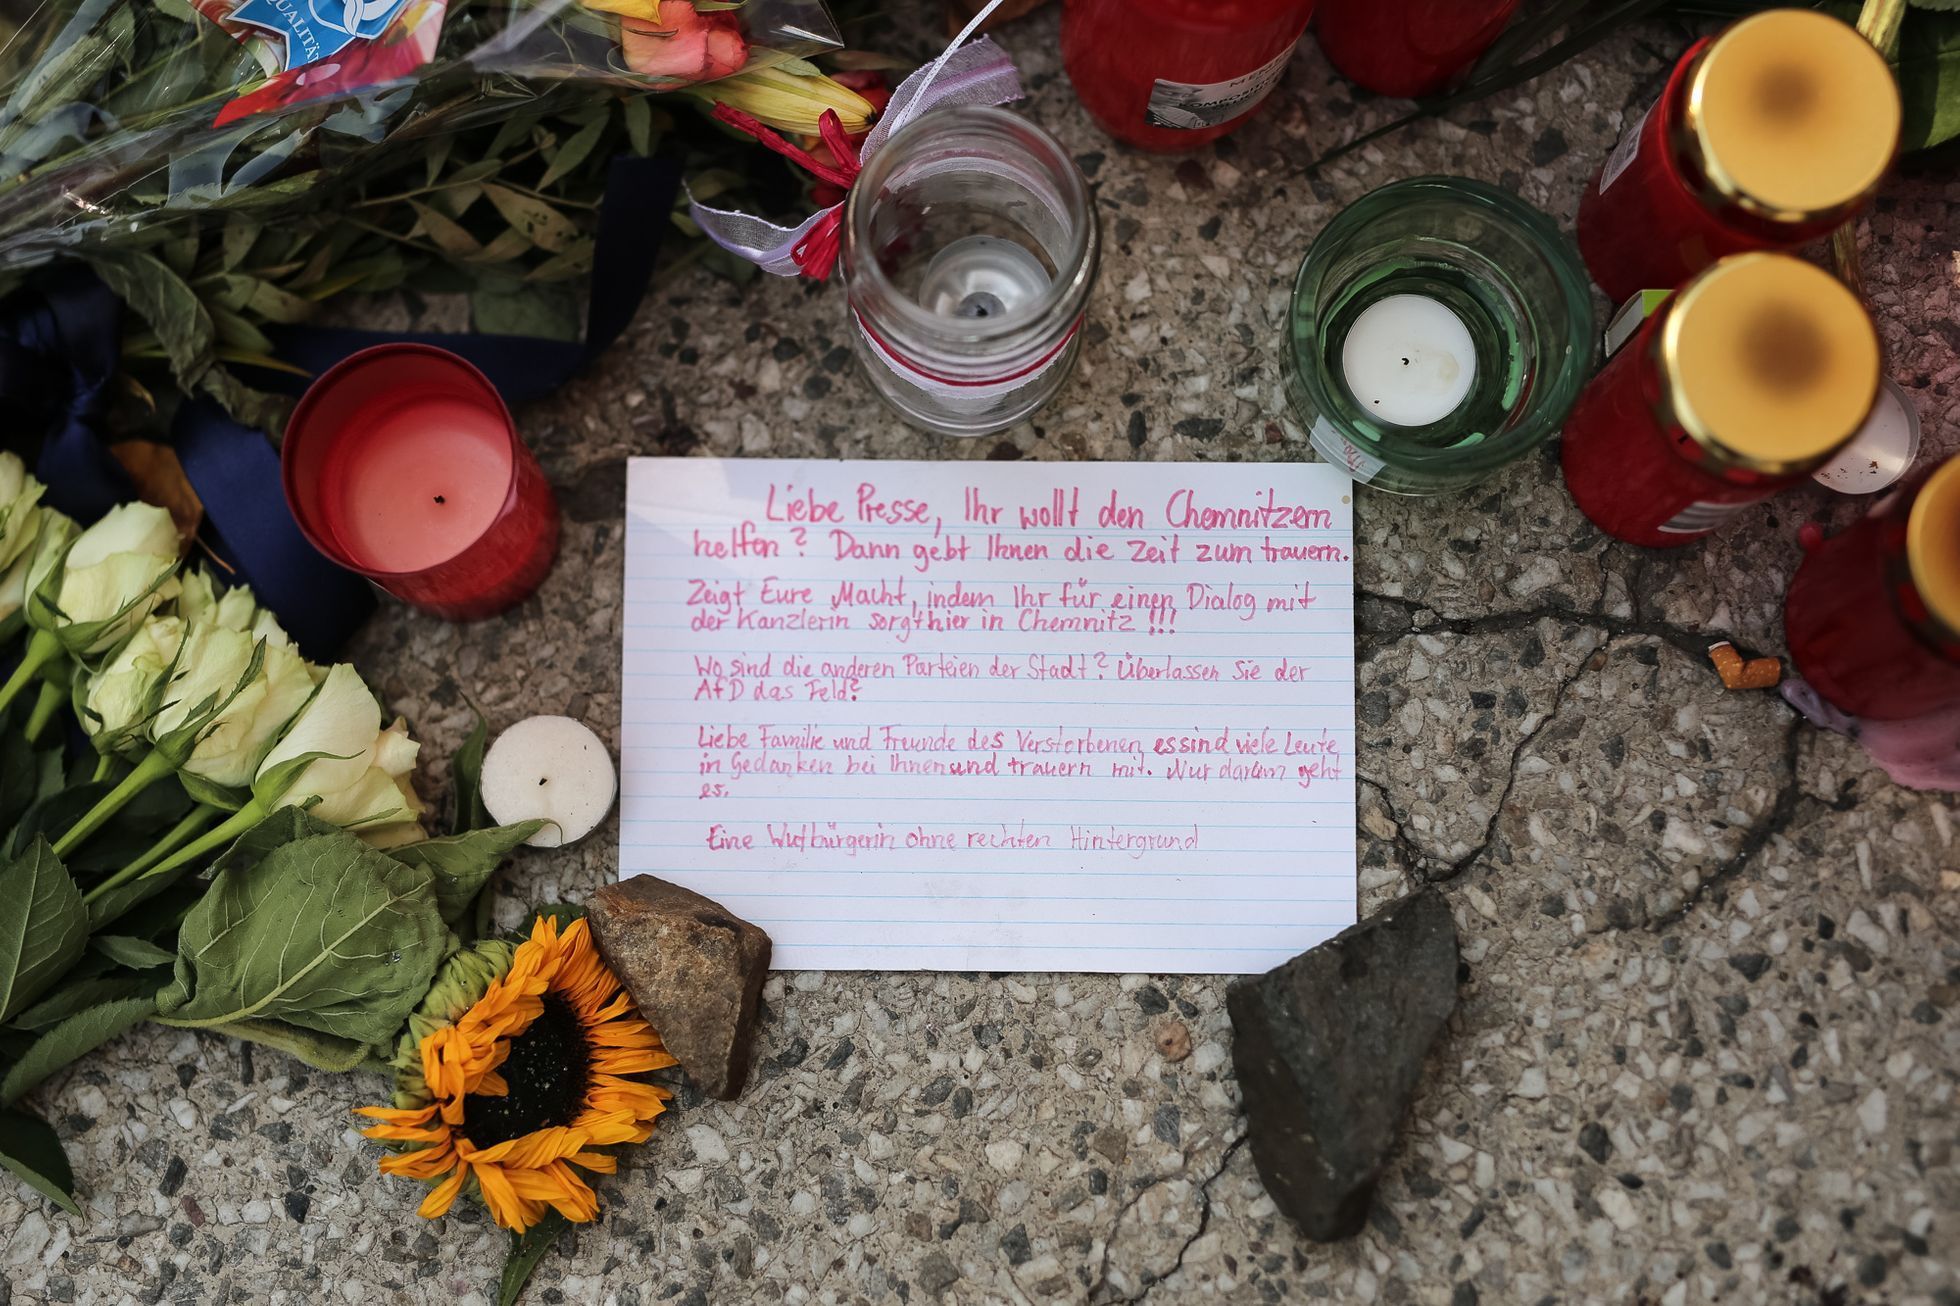 QUALITÄT
KOMPOSITION
Liebe Presse, Ihr wollt den Chemnitzern
helfen? Dann gebt Ihnen die Zeit zum trauern.
Zeigt Eure Macht, indem Ihr für einen Dialog mit
der Kanzlerin sorgt hier in Chemnitz !!!
Wo sind die anderen Parteien der Stadt? Überlassen Sie der
AfD das Feld?
Liebe Familie und Freunde des Verstorbenen, es sind viele Leute
in Gedanken bei Ihnen und trauern mit. Nur darum geht
es.
Eine Wutbürgerin ohne rechten Hintergrund